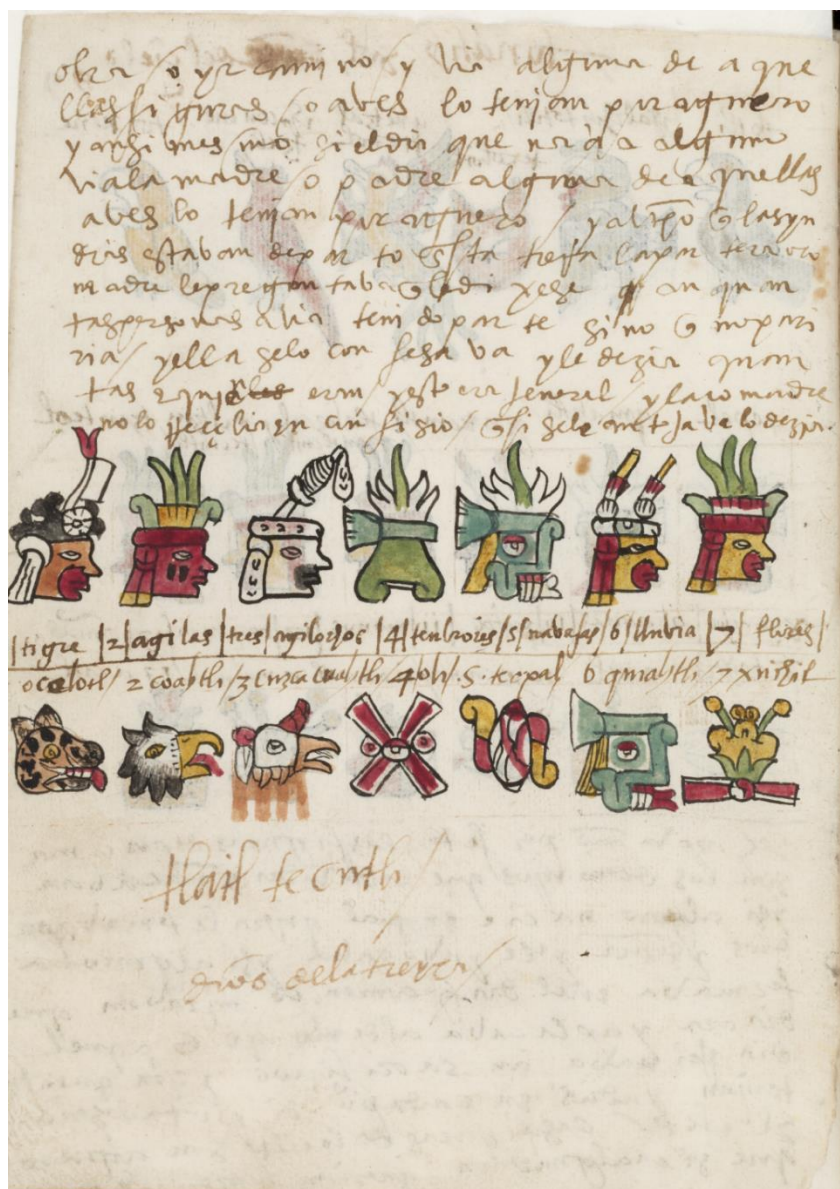 obra / o yr camino / y via alguna de aque
llas figuras / o aves lo tenjan por aguero
y ansi mesmo si el dia que naçia alguno
via la madre / o padre alguna de aquellas
aves lo tenjan por aguero / y al tpõ q̃ las yn
dias estavan de parto q̃sta trefa la partera o co
madre le preguntava q̃ le dixese quan
tas personas avia tenido parte si no q̃ no pari
ria / y ella se lo confesava y le dezia quan
tas eran / y esto era jeneral / y la comadre
no lo q̃ si se le antojava lo dezia.
|tigre |2|agilas |tres|agilochos |4|tenbrores|5|nabajas|6|llubia |7| flores|
oçelotl / 2 coabtli / 3 cuzcacuabtli / 4 oli /.5. tecpal 6 quiabtli / 7 xuchil
tlatl tecutli /
dios de la tierra /